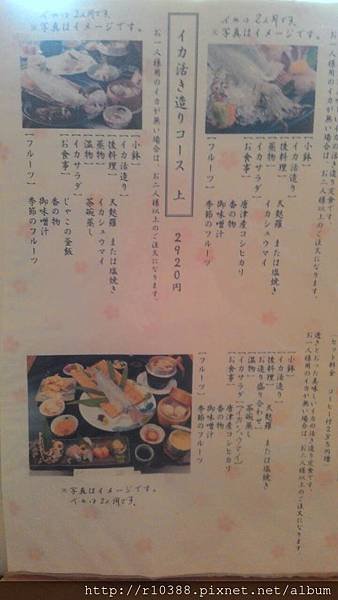 透きとおった美味しいイカの活き造り定食です。
お一人様用のイカが無い場合は、お二人様以上のご注文になります。
[小鉢]
[イカ活造り]
[後料理] 天麩羅 または塩焼き
[蒸物] イカシュウマイ
[イカサラダ]
[お食事] 唐津産コシヒカリ
香の物
御味噌汁
[フルーツ] 季節のフルーツ
イカは2人用です
※写真はイメージです。
イカ活き造りコース 上 2920円
お一人様用のイカが無い場合は、お二人様以上のご注文になります。
[小鉢]
[イカ活造り]
[後料理] 天麩羅 または塩焼き
[蒸物] イカシュウマイ
[温物] 茶碗蒸し
[イカサラダ]
[お食事] じゃこの釜飯
香の物
御味噌汁
[フルーツ] 季節のフルーツ
イカは2人用です
※写真はイメージです。
[小鉢]
[イカ活造り]
[後料理] 天麩羅 または塩焼き
[お造り盛り合わせ]
[温物] 茶碗蒸し
[お食事] 唐津産コシヒカリ
香の物
御味噌汁
[フルーツ] 季節のフルーツ
※写真はイメージです。
イカは2人用です。
http://r10388.pixnet.net/album